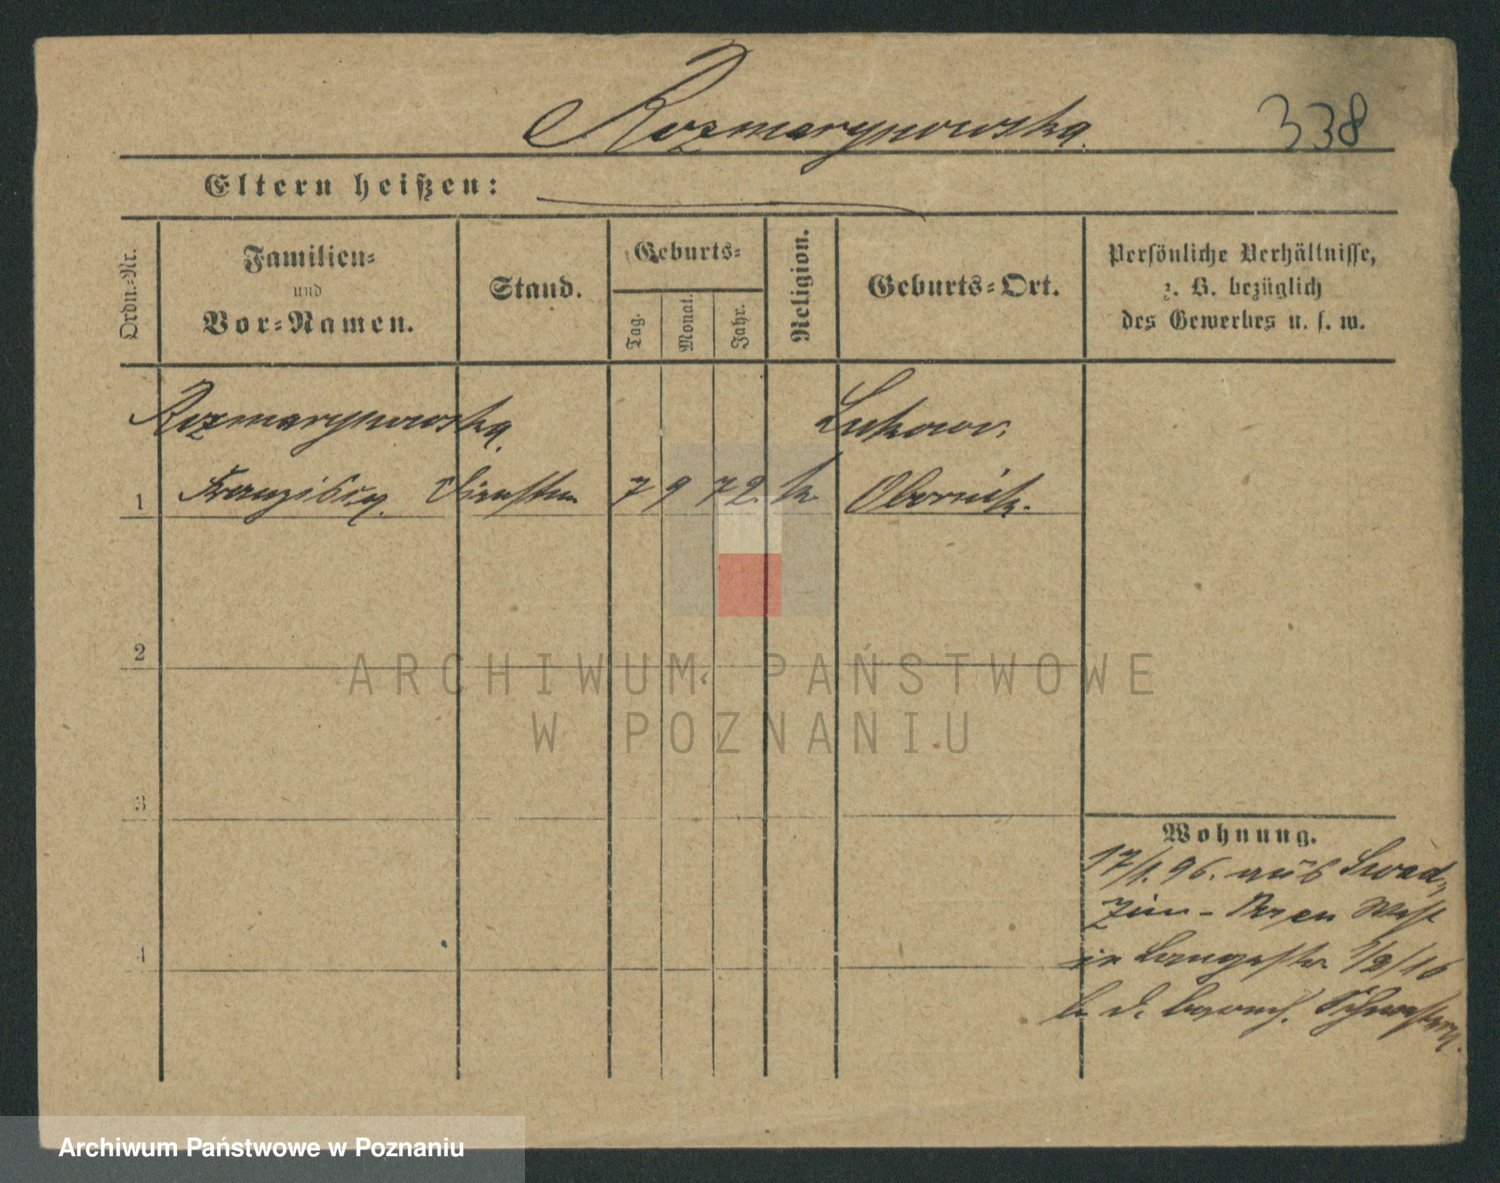 Rozmarynowska 338
Eltern heißen:
Ordn.-Nr.
Familien-
und
Vor-Namen.
Stand.
Geburts-
Tag.
Monat.
Jahr.
Religion.
Geburts-Ort.
Persönliche Verhältnisse,
z. B. bezüglich
des Gewerbes u. s. w.
Rozmarynowska Lukowo.
1 Franziska. 7 9 72. k. Obornik.
2
ARCHIWUM PAŃSTWOWE
W POZNANIU
3
Wohnung.
17/1. 96. aus
4
in Langestr.
b. d. barmh. Schwestern.
Archiwum Państwowe w Poznaniu